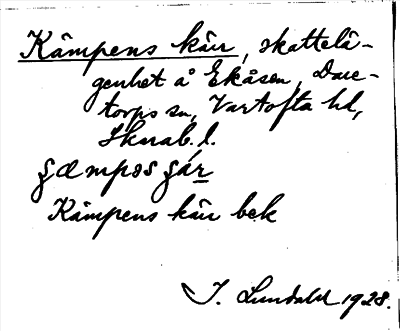 Kämpens kärr, skattelä-
genhet å Ekåsen, Dare-
torps sn, Vartofta hd,
Skarab. l.
Kämpens kärr bek
I. Lundahl 1928.